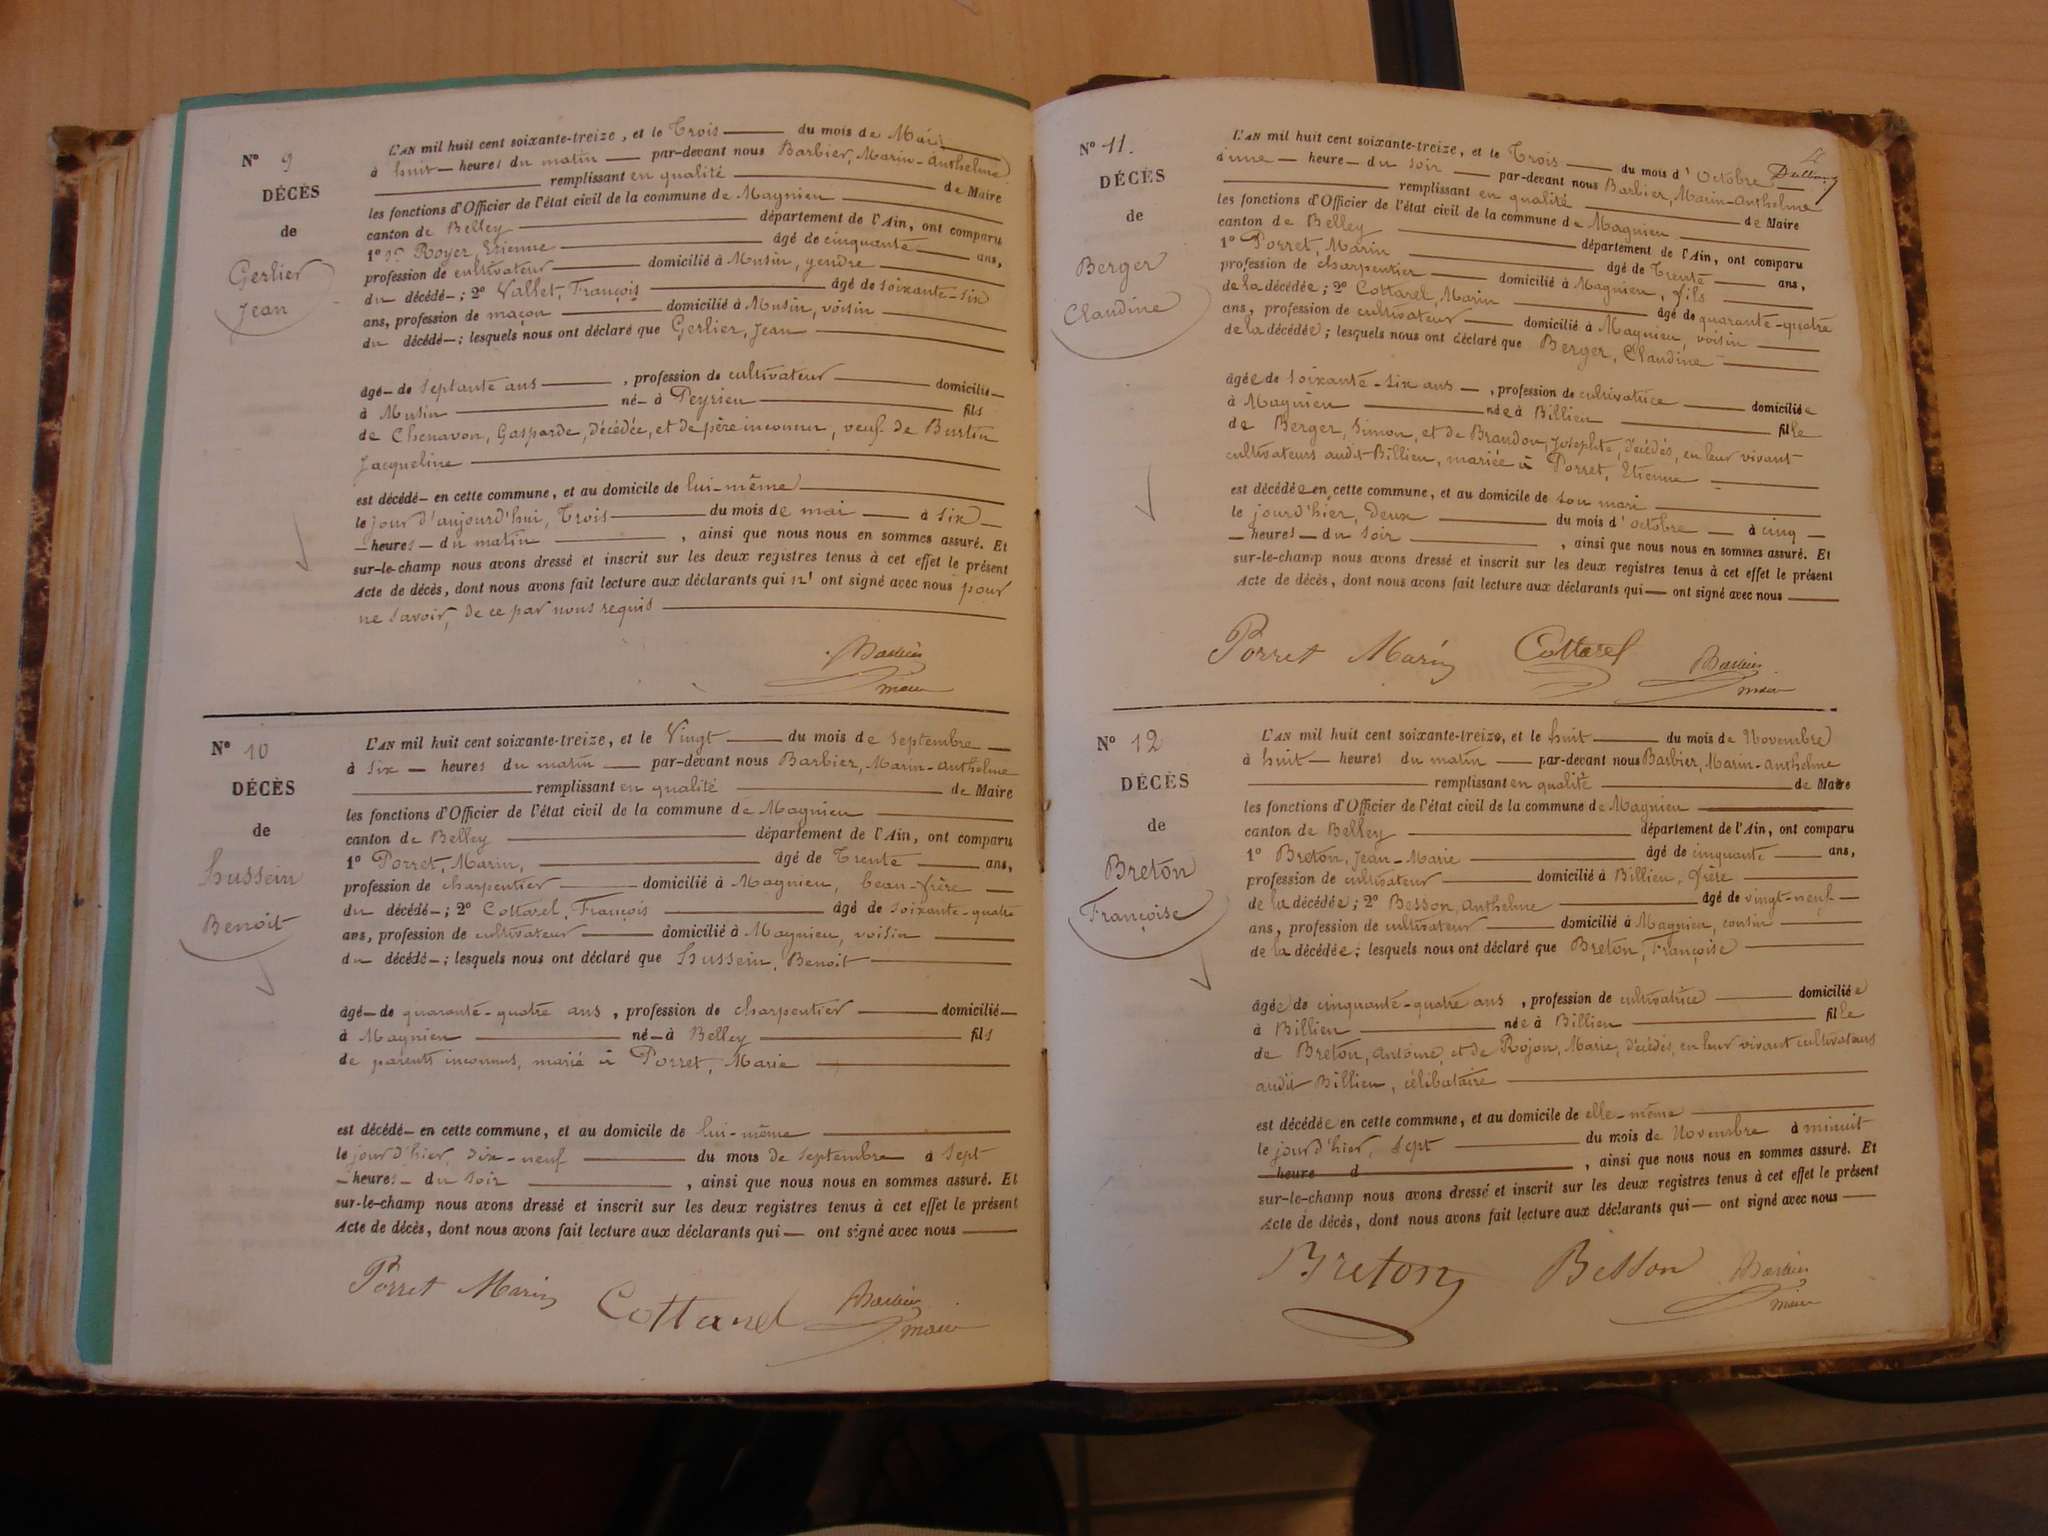 N° 9
DÉCÈS
de
Gerlier
Jean
L'AN mil huit cent soixante-treize, et le Trois du mois de Mai
à huit heures du matin par-devant nous Barbier, Marin-Anthelme
remplissant en qualité de Maire
les fonctions d'Officier de l'état civil de la commune de Magnieu
canton de Belley département de l'Ain, ont comparu
1° Royer, Etienne âgé de cinquante ans,
profession de cultivateur domicilié à Musin, gendre
du décédé ; 2° Vallet, François âgé de soixante-six
ans, profession de maçon domicilié à Musin, voisin
du décédé ; lesquels nous ont déclaré que Gerlier, Jean
âgé de septante ans, profession de cultivateur domicilié
à Musin né à Peyrieu fils
de Chenavon, Gasparde, décédée, et de père inconnu, veuf de Burtin
Jacqueline
est décédé en cette commune, et au domicile de lui-même
le jour d'aujourd'hui, Trois du mois de mai à six
heures du matin, ainsi que nous nous en sommes assuré. Et
sur-le-champ nous avons dressé et inscrit sur les deux registres tenus à cet effet le présent
Acte de décès, dont nous avons fait lecture aux déclarants qui n'ont signé avec nous pour
ne savoir, de ce par nous requis
Barbier
maire
N° 10
DÉCÈS
de
Hussein
Benoit
L'AN mil huit cent soixante-treize, et le Vingt du mois de Septembre
à six heures du matin par-devant nous Barbier, Marin-Anthelme
remplissant en qualité de Maire
les fonctions d'Officier de l'état civil de la commune de Magnieu
canton de Belley département de l'Ain, ont comparu
1° Porret, Marin, âgé de Trente ans,
profession de charpentier domicilié à Magnieu, beau-frère
du décédé ; 2° Cottarel, François âgé de soixante-quatre
ans, profession de cultivateur domicilié à Magnieu, voisin
du décédé ; lesquels nous ont déclaré que Hussein, Benoit
âgé de quarante-quatre ans, profession de charpentier domicilié
à Magnieu né à Belley fils
de parents inconnus, marié à Porret, Marie
est décédé en cette commune, et au domicile de lui-même
le jour d'hier, dix-neuf du mois de Septembre à sept
heures du soir, ainsi que nous nous en sommes assuré. Et
sur-le-champ nous avons dressé et inscrit sur les deux registres tenus à cet effet le présent
Acte de décès, dont nous avons fait lecture aux déclarants qui ont signé avec nous
Porret Marin Cottarel Barbier
maire
N° 11.
DÉCÈS
de
Berger
Claudine
L'AN mil huit cent soixante-treize, et le Trois du mois d'Octobre
à une heure du soir par-devant nous Barbier, Marin-Anthelme
remplissant en qualité de Maire
les fonctions d'Officier de l'état civil de la commune de Magnieu
canton de Belley département de l'Ain, ont comparu
1° Porret, Marin âgé de Trente ans,
profession de charpentier domicilié à Magnieu, fils
de la décédée ; 2° Cottarel, Marin âgé de quarante-quatre
ans, profession de cultivateur domicilié à Magnieu, voisin
de la décédée ; lesquels nous ont déclaré que Berger, Claudine
âgée de soixante-six ans, profession de cultivatrice domiciliée
à Magnieu née à Billieu fille
de Berger, Simon, et de Brandon, Josephte, décédés, en leur vivant
cultivateurs audit Billieu, mariée à Porret, Etienne
est décédée en cette commune, et au domicile de son mari
le jour d'hier, Deux du mois d'octobre à cinq
heures du soir, ainsi que nous nous en sommes assuré. Et
sur-le-champ nous avons dressé et inscrit sur les deux registres tenus à cet effet le présent
Acte de décès, dont nous avons fait lecture aux déclarants qui ont signé avec nous
Porret Marin Cottarel Barbier
maire
N° 12
DÉCÈS
de
Breton
Françoise
L'AN mil huit cent soixante-treize, et le huit du mois de Novembre
à huit heures du matin par-devant nous Barbier, Marin-Anthelme
remplissant en qualité de Maire
les fonctions d'Officier de l'état civil de la commune de Magnieu
canton de Belley département de l'Ain, ont comparu
1° Breton, Jean-Marie âgé de cinquante ans,
profession de cultivateur domicilié à Billieu, frère
de la décédée ; 2° Besson, Anthelme âgé de vingt-neuf
ans, profession de cultivateur domicilié à Magnieu, cousin
de la décédée ; lesquels nous ont déclaré que Breton, Françoise
âgée de cinquante-quatre ans, profession de cultivatrice domiciliée
à Billieu née à Billieu fille
de Breton, Antoine, et de Rojon, Marie, décédés, en leur vivant cultivateurs
audit Billieu, célibataire
est décédée en cette commune, et au domicile de elle-même
le jour d'hier, sept du mois de Novembre à minuit
heure d, ainsi que nous nous en sommes assuré. Et
sur-le-champ nous avons dressé et inscrit sur les deux registres tenus à cet effet le présent
Acte de décès, dont nous avons fait lecture aux déclarants qui ont signé avec nous
Breton Besson Barbier
maire